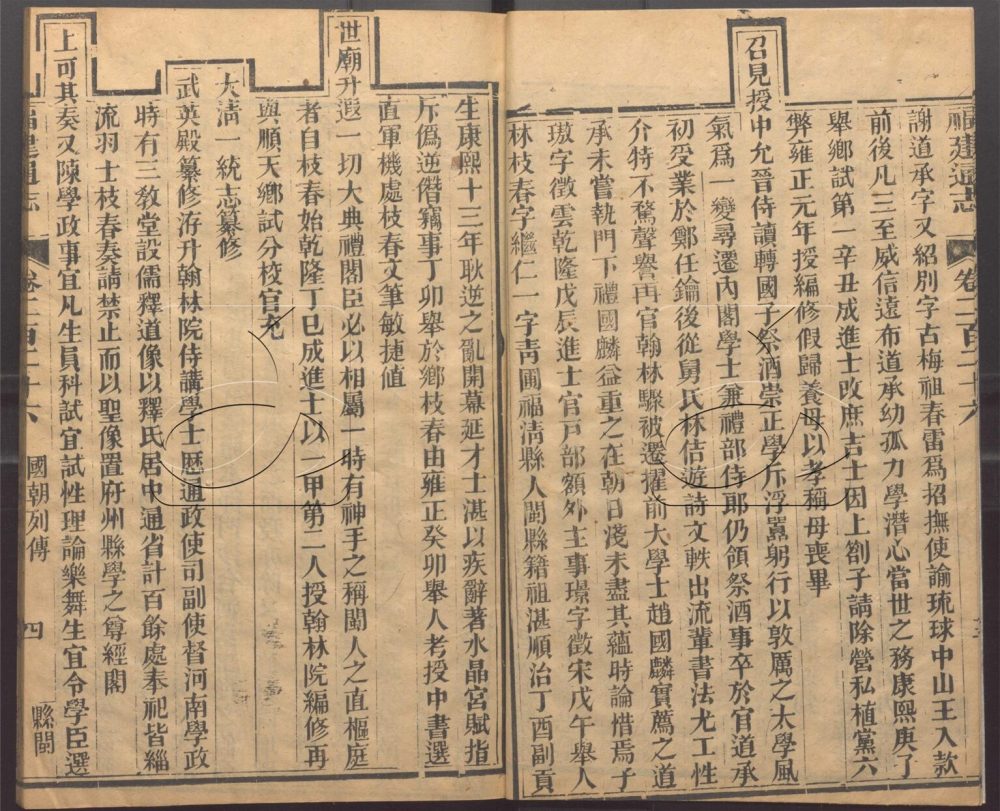 福建通志 卷二百二十六
謝道承字又紹別字古梅祖春雷爲招撫使諭琉球中山王入款
前後凡三至威信遠布道承幼孤力學潛心當世之務康熙庚子
舉鄉試第一辛丑成進士改庶吉士因上劄子請除營私植黨六
弊雍正元年授編修假歸養母以孝稱母喪畢
召見授中允晉侍讀轉國子祭酒崇正學斥浮囂躬行以敦厲之太學風
氣爲一變尋遷內閣學士兼禮部侍郎仍領祭酒事卒於官道承
初受業於鄭任鑰後從舅氏林佶遊詩文軼出流輩書法尤工性
介特不驚聲譽再官翰林驟被遷擢前大學士趙國麟實薦之道
承未嘗執門下禮國麟益重之在朝日淺未盡其蘊時論惜焉子
璈字徵雲乾隆戊辰進士官戸部額外主事璟字徵宋戊午舉人
林枝春字繼仁一字青圃福清縣人閩縣籍祖湛順治丁酉副貢
生康熙十三年耿逆之亂開幕延才士湛以疾辭著水晶宮賦指
斥僞逆僭竊事丁卯舉於鄉枝春由雍正癸卯舉人考授中書選
直軍機處枝春文筆敏捷值
世廟升遐一切大典禮閣臣必以相屬一時有神手之稱閩人之直樞庭
者自枝春始乾隆丁巳成進士以一甲第二人授翰林院編修再
與順天鄉試分校官充
大淸一統志纂修
武英殿纂修洊升翰林院侍講學士歷通政使司副使督河南學政
時有三教堂設儒釋道像以釋氏居中通省計百餘處奉祀皆緇
流羽士枝春奏請禁止而以聖像置府州縣學之尊經閣
上可其奏又陳學政事宜凡生員科試宜試性理論樂舞生宜令學臣選
福建通志 卷二百二十六 國朝列傳 四 閩縣